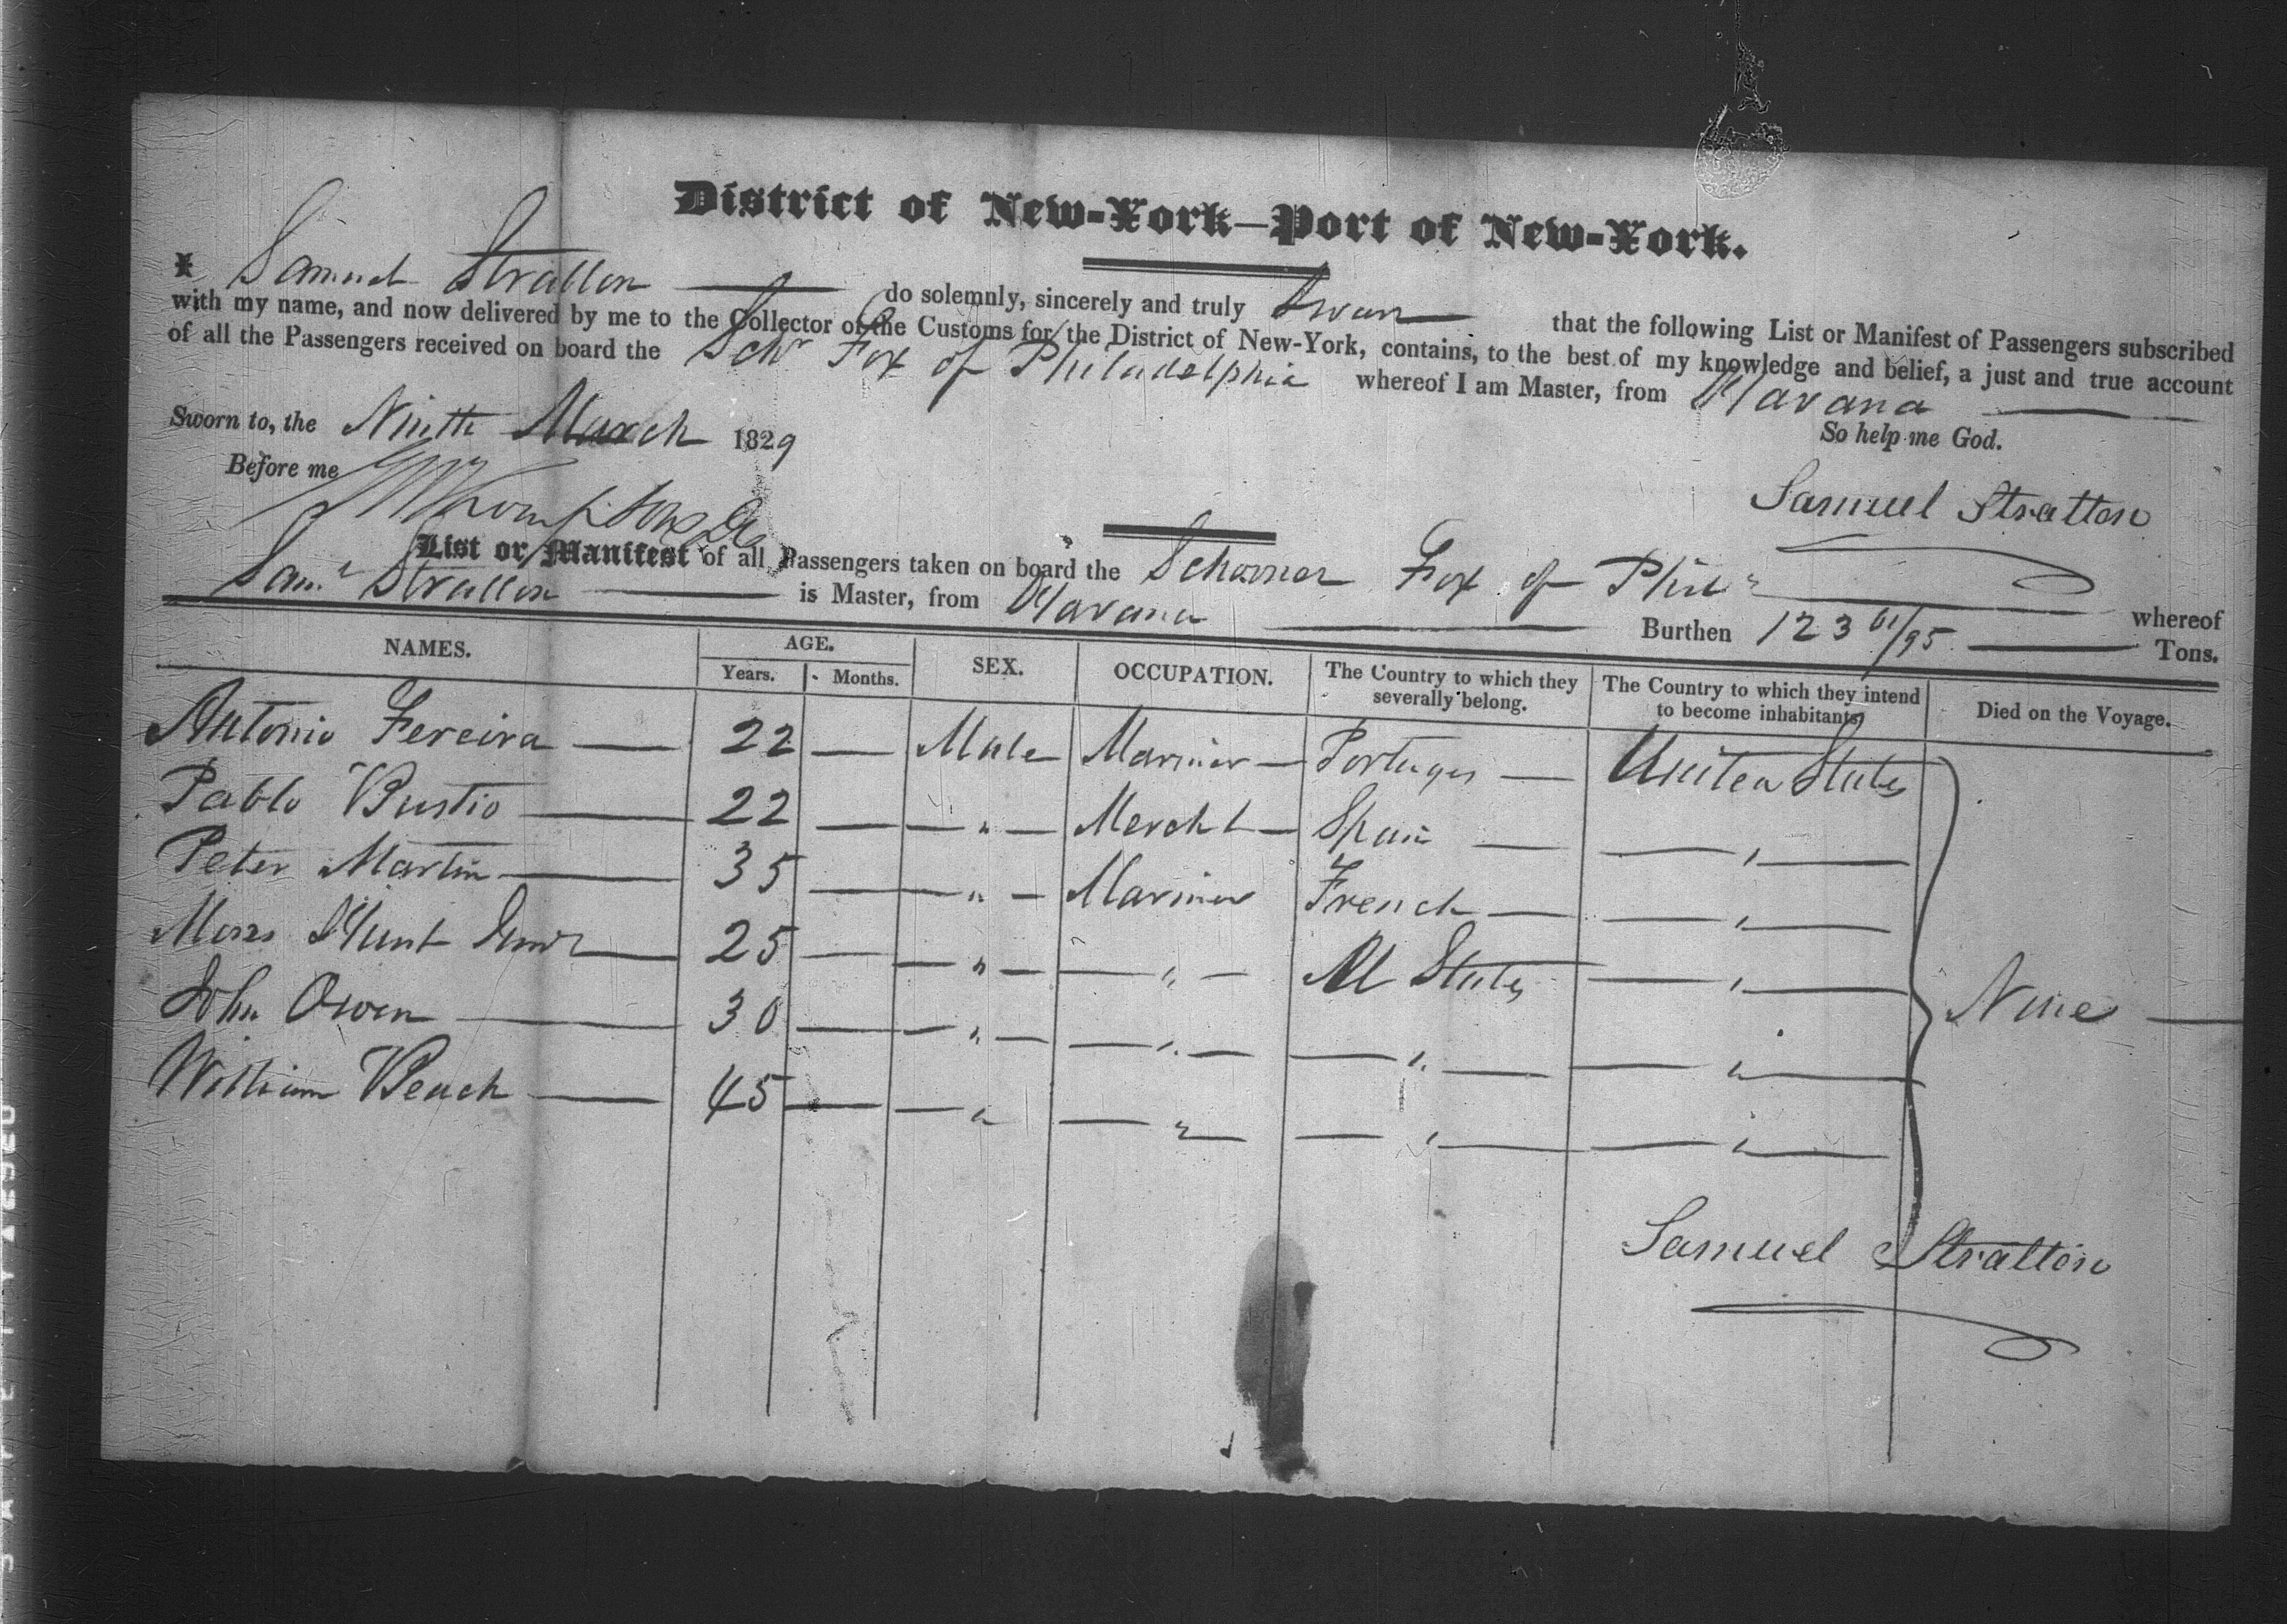 District of New-York—Port of New-York.
I Samuel Stratton do solemnly, sincerely and truly Swear that the following List or Manifest of Passengers subscribed
with my name, and now delivered by me to the Collector of the Customs for the District of New-York, contains, to the best of my knowledge and belief, a just and true account
of all the Passengers received on board the Schr Fox of Philadelphia whereof I am Master, from Havana
So help me God.
Sworn to, the Ninth March 1829
Before me
Samuel Stratton
List or Manifest of all Passengers taken on board the Schooner Fox of Phila whereof
Saml Stratton is Master, from Havana Burthen 123 61/95 Tons.
NAMES. AGE. Years. Months. SEX. OCCUPATION. The Country to which they severally belong. The Country to which they intend to become inhabitants. Died on the Voyage.
Antonio Fereira — 22 — Male Mariner — Portugues — United States
Pablo Bustio — 22 — — " — Mercht — Spain — — " —
Peter Martin — 35 — — " — Mariner French — — " —
Moses Hunt Junr — 25 — — " — — " — U States — " —
John Owen — 30 — — " — — " — — " — — " — None —
William Beach — 45 — — " — — " — — " — — " —
Samuel Stratton